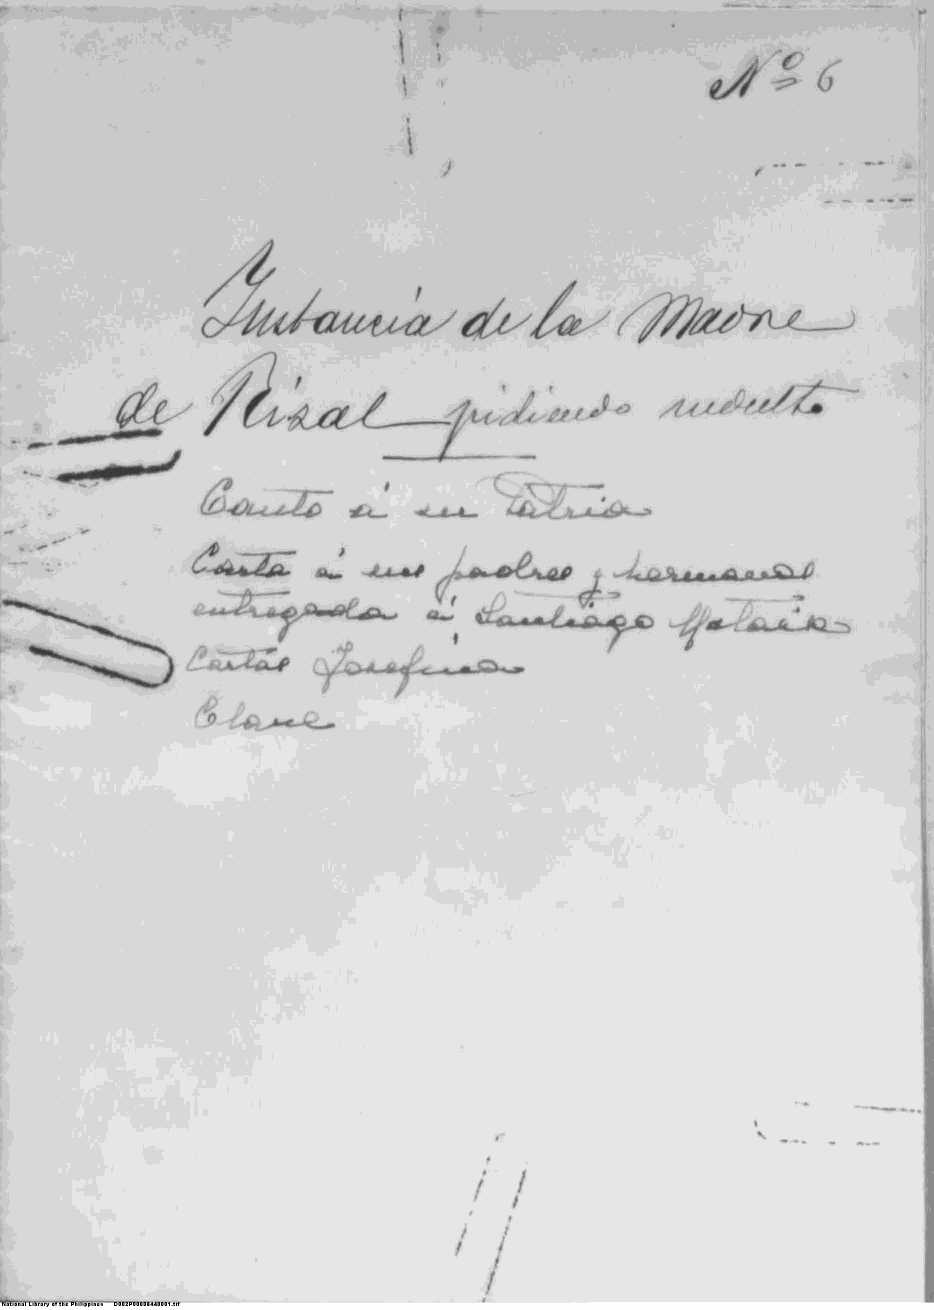 Nº 6
Instancia de la Madre
de Rizal pidiendo indulto
Canto á su Patria
Carta á sus padres y hermanos
entregada á Santiago Mataix
Cartas Josefina
Clave
National Library of the Philippines D002P00000440001.tif